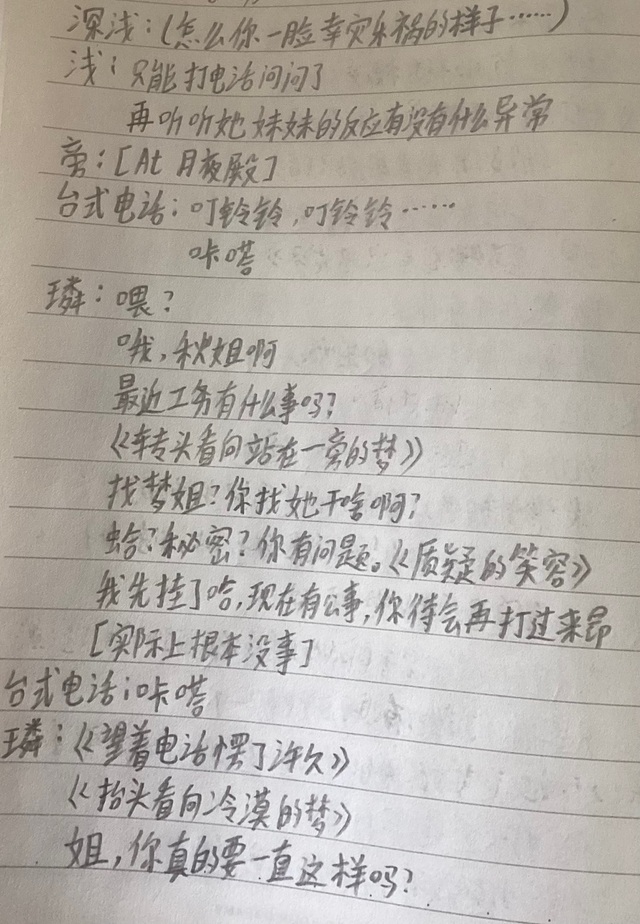 深浅：(怎么你一脸幸灾乐祸的样子……)
浅：只能打电话问问了
再听听她妹妹的反应有没有什么异常
旁：[At 月夜殿]
台式电话：叮铃铃，叮铃铃……
咔嗒
璘：喂？
哦，秋姐啊
最近工务有什么事吗？
《转头看向站在一旁的梦》
找梦姐？你找她干啥啊？
蛤？秘密？你有问题。《质疑的笑容》
我先挂了哈，现在有公事，你待会再打过来昂
[实际上根本没事]
台式电话：咔嗒
璘：《望着电话愣了许久》
《抬头看向冷漠的梦》
姐，你真的要一直这样吗？